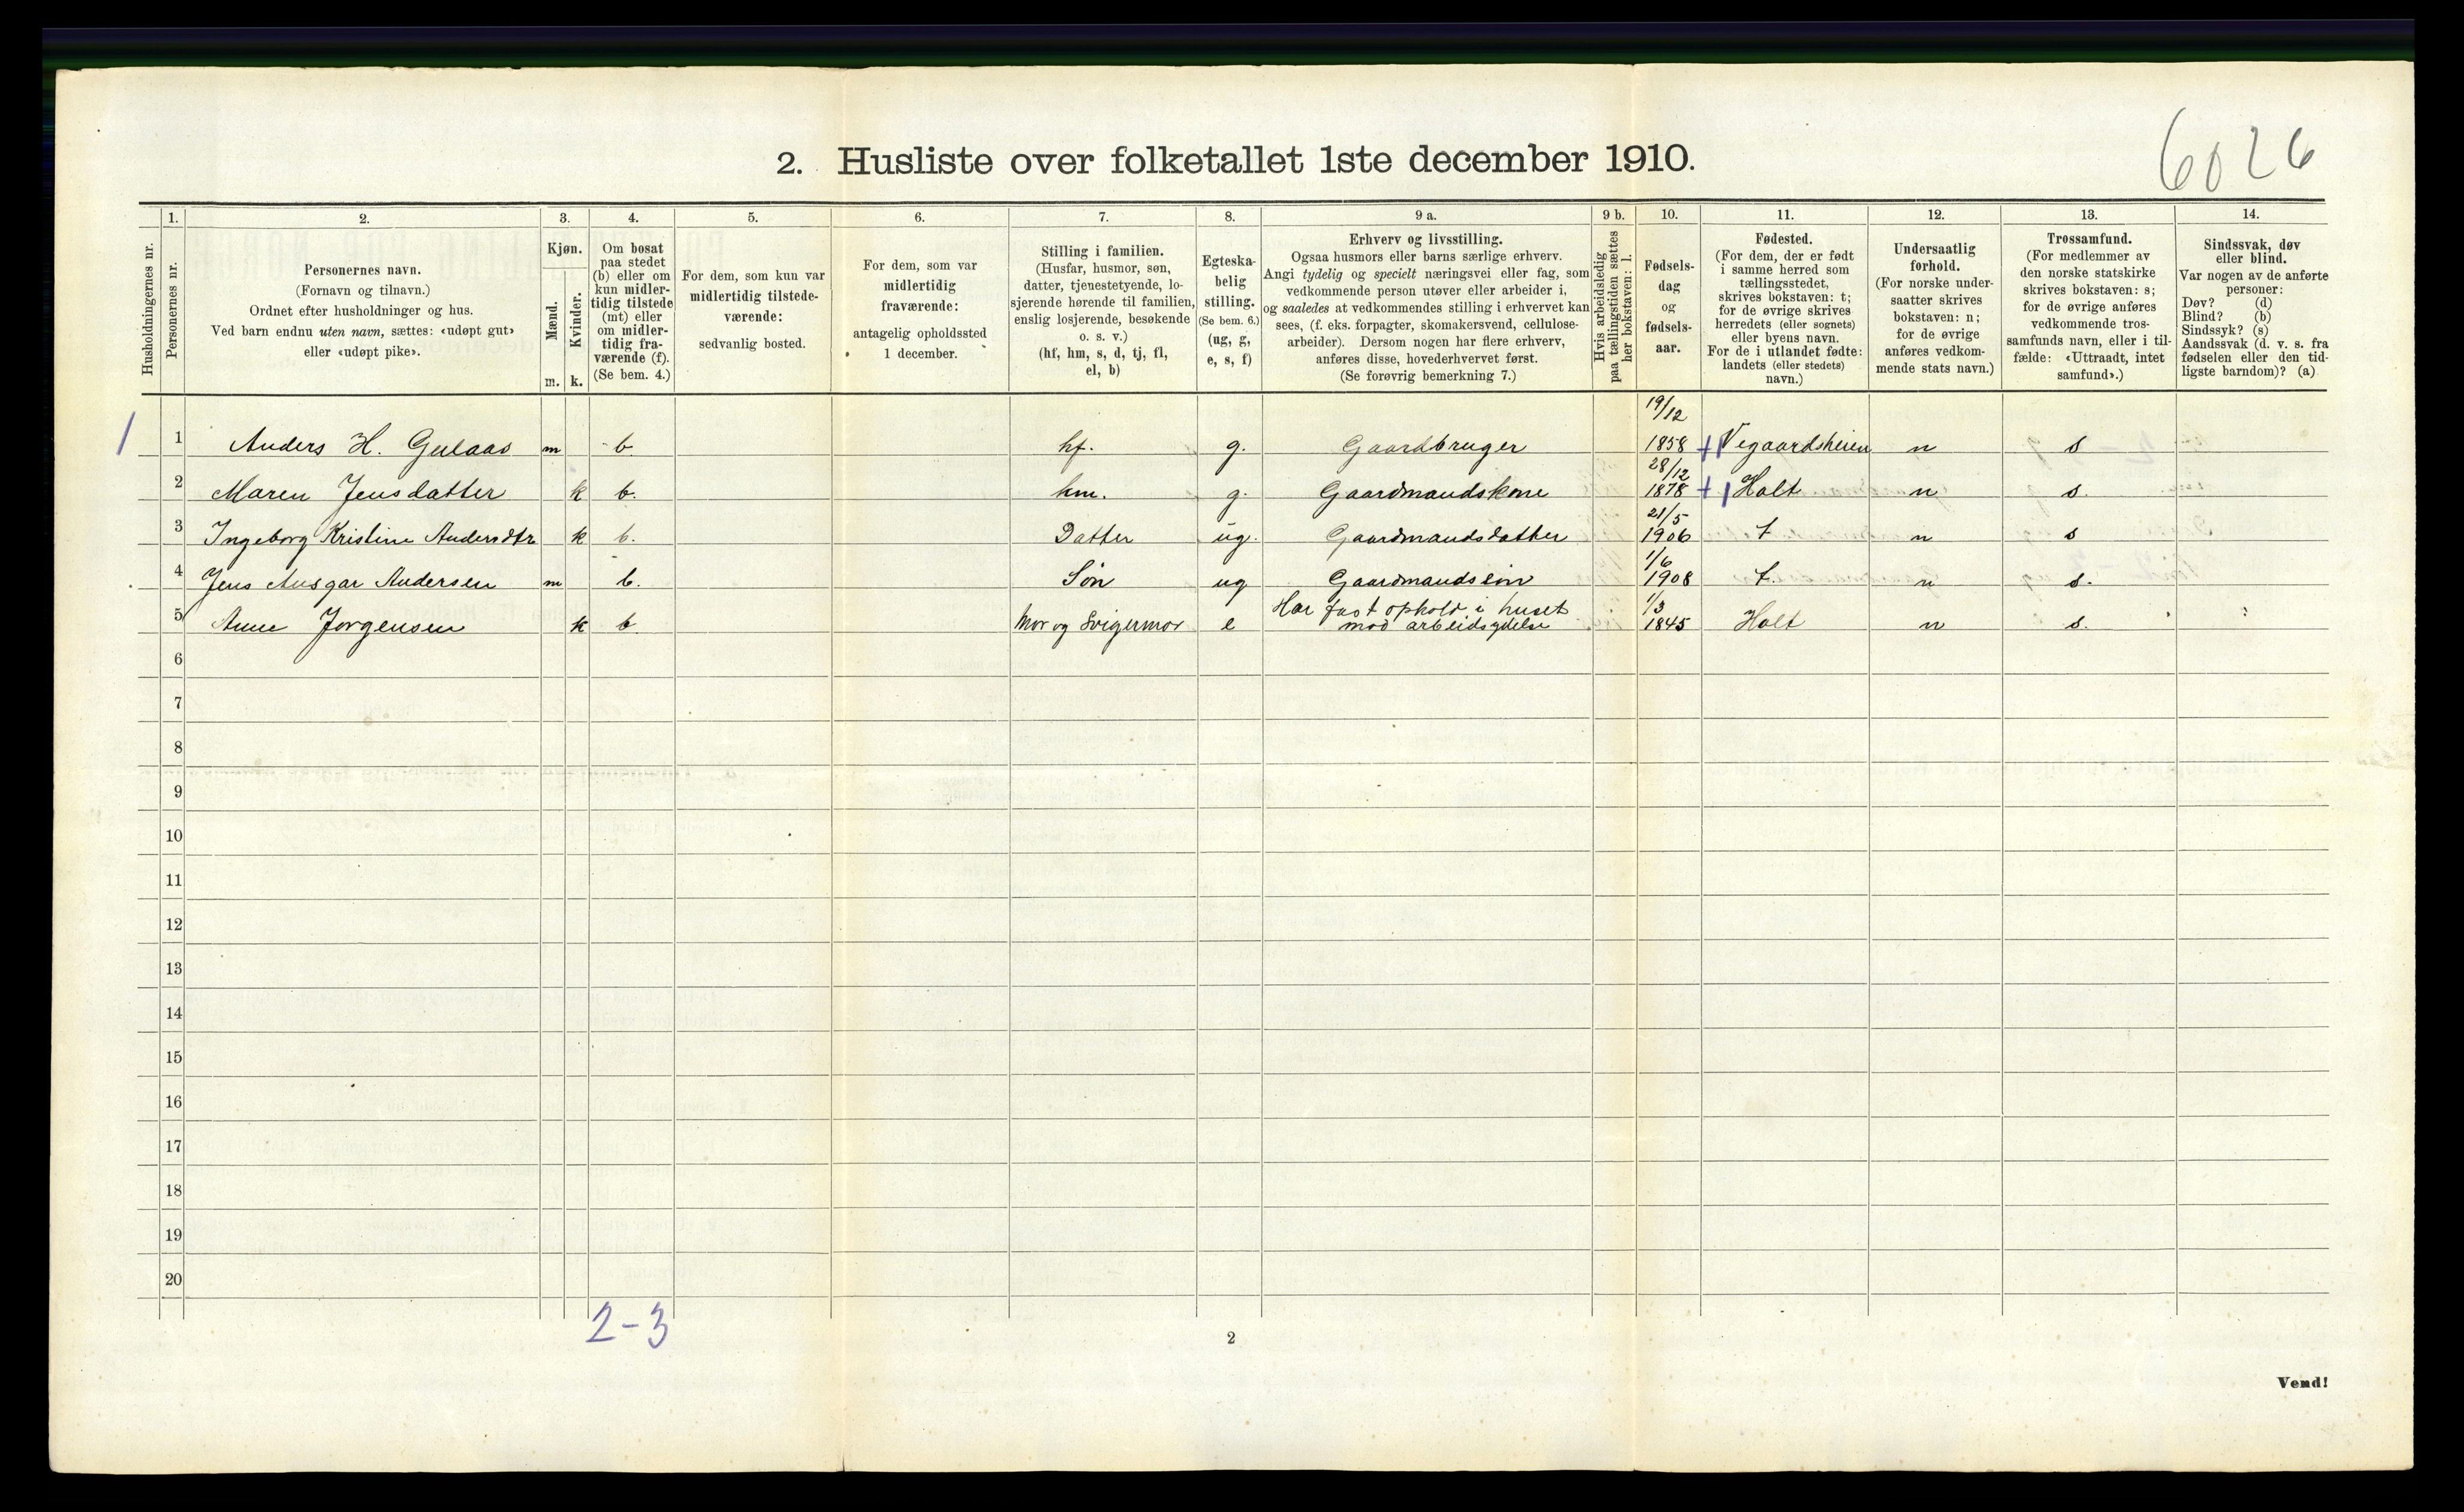 6026
2. Husliste over folketallet 1ste december 1910.
Husholdningernes nr.
1.
Personernes nr.
2.
Personernes navn.
(Fornavn og tilnavn.)
Ordnet efter husholdninger og hus.
Ved barn endnu uten navn, sættes: «udøpt gut»
eller «udøpt pike».
3.
Kjøn.
Mænd.
m.
Kvinder.
k.
4.
Om bosat
paa stedet
(b) eller om
kun midler-
tidig tilstede
(mt) eller
om midler-
tidig fra-
værende (f).
(Se bem. 4.)
5.
For dem, som kun var
midlertidig tilstede-
værende:
sedvanlig bosted.
6.
For dem, som var
midlertidig
fraværende:
antagelig opholdssted
1 december.
7.
Stilling i familien.
(Husfar, husmor, søn,
datter, tjenestetyende, lo-
sjerende hørende til familien,
enslig losjerende, besøkende
o. s. v.)
(hf, hm, s, d, tj, fl,
el, b)
8.
Egteska-
belig
stilling.
(Se bem. 6.)
(ug, g,
e, s, f)
9 a.
Erhverv og livsstilling.
Ogsaa husmors eller barns særlige erhverv.
Angi tydelig og specielt næringsvei eller fag, som
vedkommende person utøver eller arbeider i,
og saaledes at vedkommendes stilling i erhvervet kan
sees, (f. eks. forpagter, skomakersvend, cellulose-
arbeider). Dersom nogen har flere erhverv,
anføres disse, hovederhvervet først.
(Se forøvrig bemerkning 7.)
9 b.
Hvis arbeidsledig
paa tællingstiden sættes
her bokstaven: l.
10.
Fødsels-
dag
og
fødsels-
aar.
11.
Fødested.
(For dem, der er født
i samme herred som
tællingsstedet,
skrives bokstaven: t;
for de øvrige skrives
herredets (eller sognets)
eller byens navn.
For de i utlandet fødte:
landets (eller stedets)
navn.)
12.
Undersaatlig
forhold.
(For norske under-
saatter skrives
bokstaven: n;
for de øvrige
anføres vedkom-
mende stats navn.)
13.
Trossamfund.
(For medlemmer av
den norske statskirke
skrives bokstaven: s;
for de øvrige anføres
vedkommende tros-
samfunds navn, eller i til-
fælde: «Uttraadt, intet
samfund».)
14.
Sindssvak, døv
eller blind.
Var nogen av de anførte
personer:
Døv? (d)
Blind? (b)
Sindssyk? (s)
Aandssvak (d. v. s. fra
fødselen eller den tid-
ligste barndom)? (a)
1 1 Anders H. Gulaas m b. hf. g. Gaardbruger 19/12 1858 + Vegaardsheien n s
2 Maren Jensdatter k b. hm. g. Gaardmandskone 28/12 1878 + Holt n s.
3 Ingeborg Kristine Andersdtr k b. Datter ug. Gaardmandsdatter 21/5 1906 t n s
4 Jens Ansgar Andersen m b. Søn ug Gaardmandssøn 1/6 1908 t. n s.
5 Anne Jorgensen k b. Mor og Svigermor e Har fast ophold i huset mod arbeidsydelse 1/3 1845 Holt n s.
6
7
8
9
10
11
12
13
14
15
16
17
18
19
20
2-3
2
Vend!